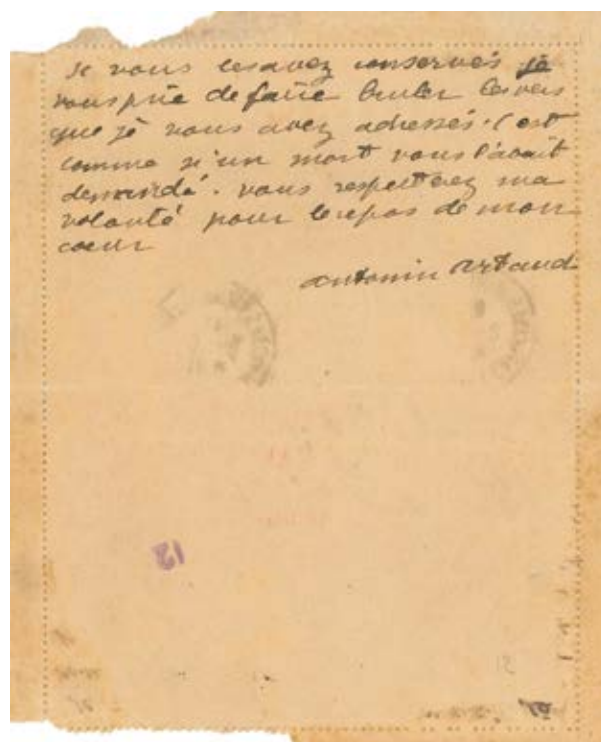 Si vous les avez conservés je
vous prie de faire bruler les vers
que je vous avez adressés. C'est
comme si un mort vous l'avait
demandé. vous respecterez ma
volonté pour le repos de mon
coeur
antonin artaud
12